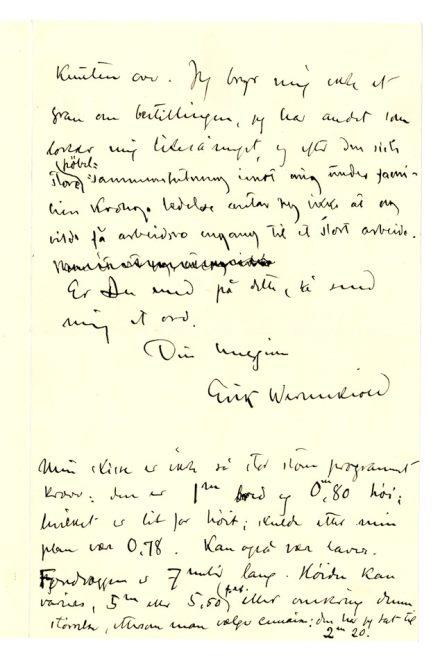 Knuten over. Jeg bryr mig ikke et
gran om bestillingen, jeg har andet som
lokker mig likesaameget, og efter den siste
store pøbel-sammenslutning imot mig under fami-
lien Krohgs ledelse antar jeg ikke at jeg
vilde få arbeidsro engang til et stort arbeide.
Er Du med på dette, så send
mig et ord.
Din hengivne
Erik Werenskiold
Min skisse er ikke så stor som programmet
kræver: den er 1 m bred og 0.m80 høi;
hvilket er litt for høit; skulde efter min
plan vær 0,78. Kan også vær lavere.
Fondvæggen er 7 meter lang. Høiden kan
varies, 5 m eller 5,50 eller omkring denne
størrelse, eftersom man vælger; den har jeg sat til
2 m 20.